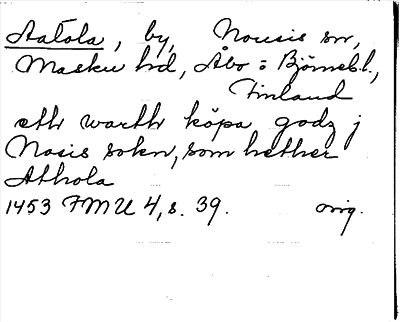 Aatola, by, Nousis sn,
Masku hd, Åbo o Björneb. l.,
Finland
eth warth köpa godz j
Nosis sokn, som hether
Athola
1453 FMU 4, s. 39. orig.